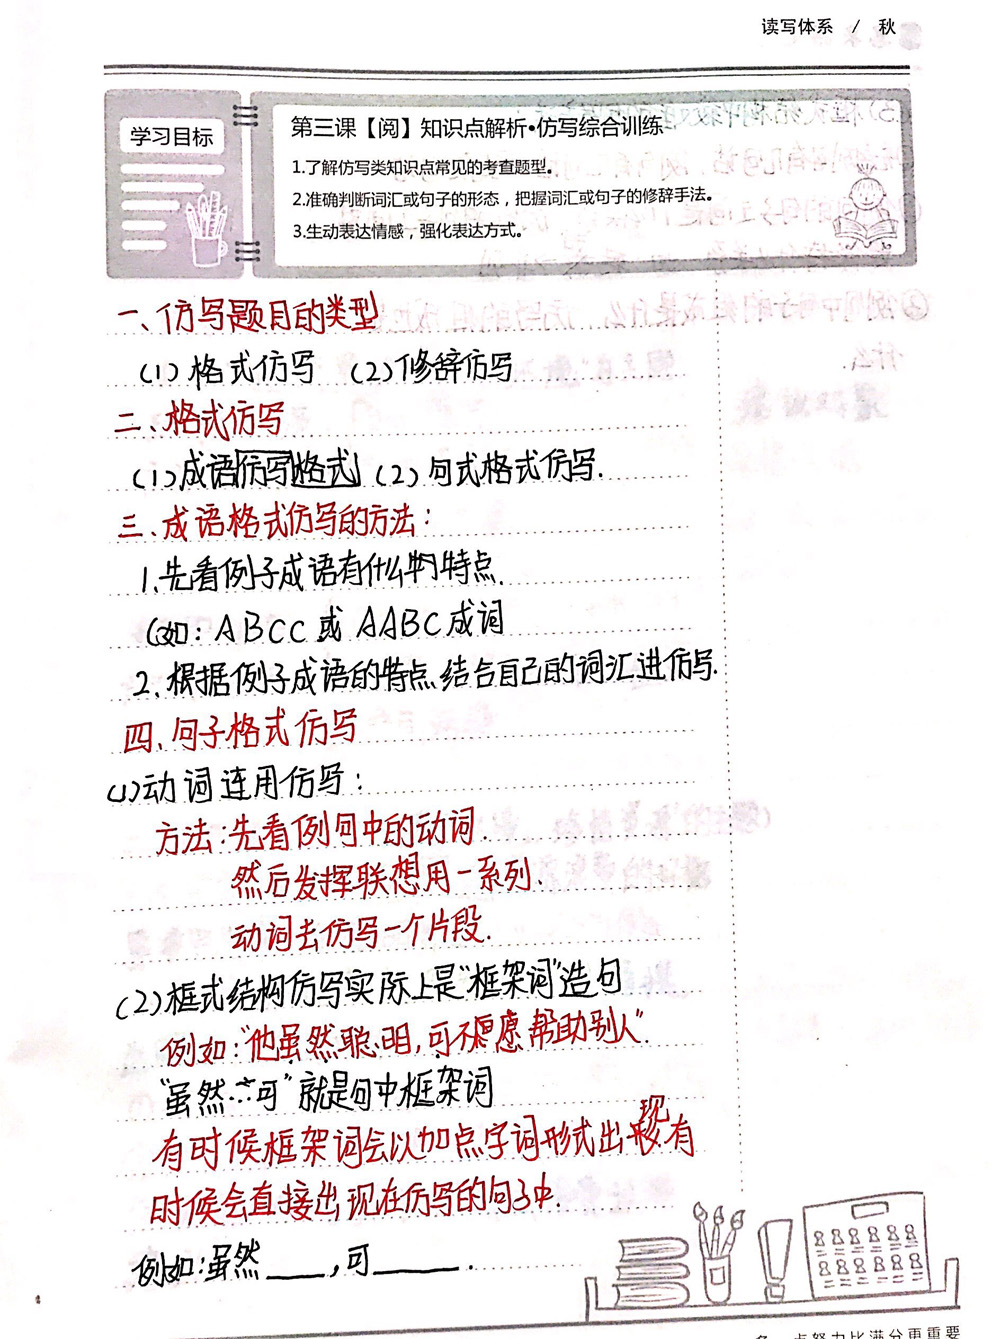 读写体系 / 秋
学习目标
第三课【阅】知识点解析•仿写综合训练
1.了解仿写类知识点常见的考查题型。
2.准确判断词汇或句子的形态，把握词汇或句子的修辞手法。
3.生动表达情感，强化表达方式。
一、仿写题目的类型
(1) 格式仿写 (2)修辞仿写
二、格式仿写
(1)成语仿写格式 (2) 句式格式仿写.
三、成语格式仿写的方法：
1.先看例子成语有什么特点.
(如：ABCC 或 AABC成词
2. 根据例子成语的特点,结合自己的词汇进仿写.
四、句子格式仿写
(1)动词连用仿写：
方法：先看例句中的动词.
然后发挥联想用一系列.
动词去仿写一个片段.
(2)框式结构仿写实际上是“框架词”造句
例如：“他虽然聪明，可不愿意帮助别人”.
“虽然…可”就是句中框架词
有时候框架词会以加点字词形式出现有
时候会直接出现在仿写的句子中.
例如：虽然____，可_____.
点努力比满分更重要